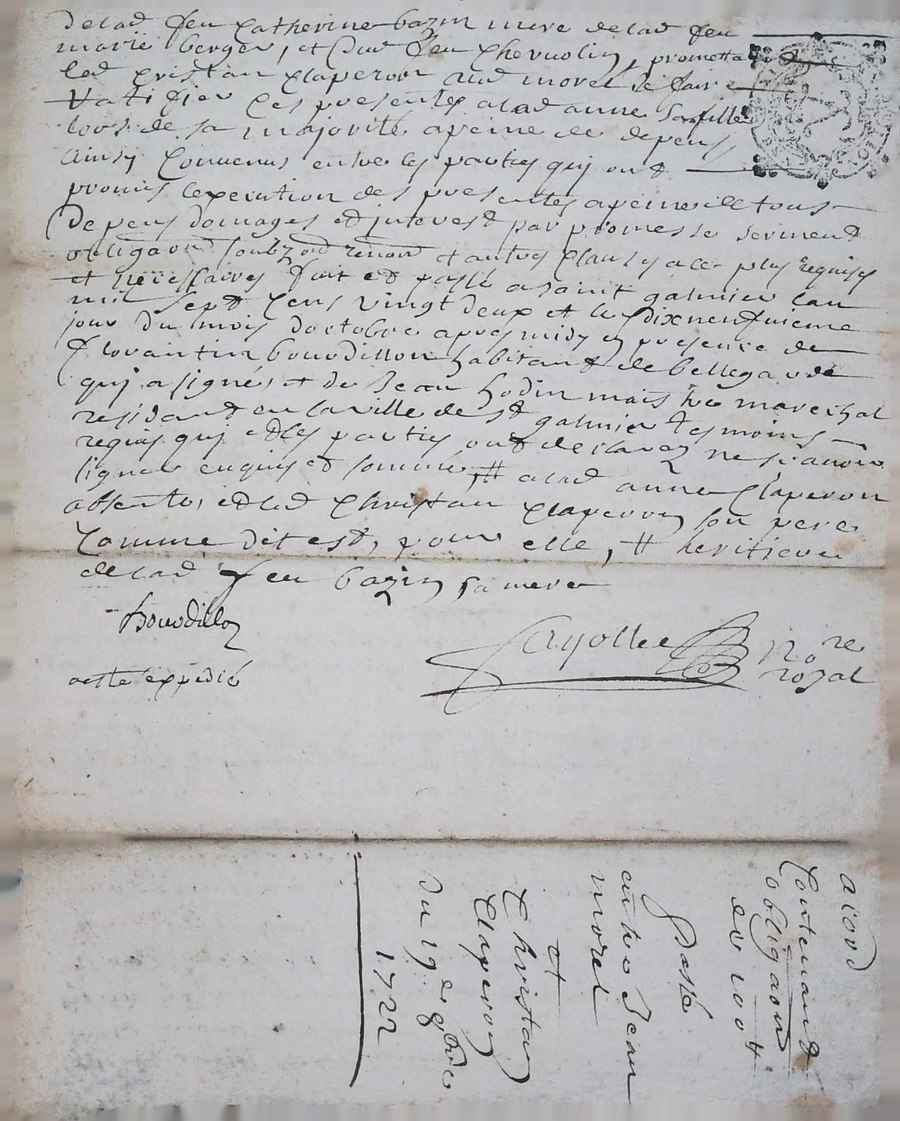 delad feu Catherine bazin mere delad feu
marie berger, et dud feu Cheruolin, promettant
led Cristan Claperon aud morel de faire
Ratifier Ces presentes a lad anne sa fille
lors de sa majorité apeine de depens
ainsy Convenus entre les parties qui ont
promis lexecution des presentes apeine de tous
depens domages et interest par promesse serment
obligaon soubz et renon et autres Clauses a ce plus requises
et necessaires fait et passé a saint galmier Lan
mil sept Cens vingt deux et le dixneufuieme
jour du mois doctobre apres midy en presence de
florantin bourdillon habitant de bellegarde
qui a signé et de Jean hodin maistre marechal
residant en la ville de st galmier tesmoins
requis qui et les parties ont declarez ne scauoir
signer enquis et sommé # a lad anne Claperon
absente, et led Christan Claperon son pere
Comme dit est, pour elle, # heritiere
delad feu bazin sa mere
bourdillon
Jayollee Nore
royal
acte expedié
acord
Contenant
obligaon
de 100 #
Passé
entre Jean
morel
et
Christan
Claperon
du 19e 8bre
1722